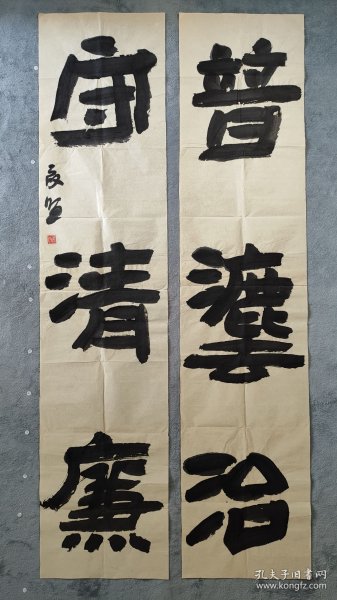 普灋治
守清廉
孔夫子旧书网
www.kongfz.com